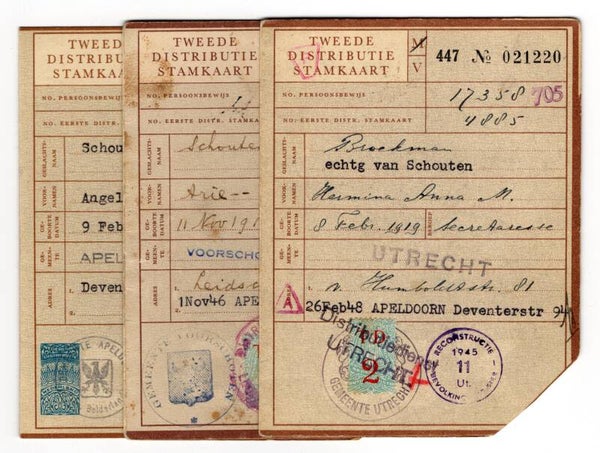 TWEEDE
DISTRIBUTIE
STAMKAART
NO. PERSOONSBEWIJS
NO. EERSTE DISTR.
GESLACHTS-NAAM
Schou
VOOR-NAMEN
Angel
GE-BOORTE DATUM
9 Feb
GE-MEEN-TE
APEL
ADRES
1.
Deven
2.
TE APELD
Gelderland
TWEEDE
DISTRIBUTIE
STAMKAART
NO. PERSOONSBEWIJS
NO. EERSTE DISTR.
GESLACHTS-NAAM
Schouten
VOOR-NAMEN
Arie--
GE-BOORTE DATUM
11 Nov 191
GE-MEEN-TE
VOORSCHO
ADRES
1.
Leidsc
2.
1Nov46 APE
GEMEENTE VOORSCHOTEN
TWEEDE
DISTRIBUTIE
STAMKAART
M
V
447 No 021220
NO. PERSOONSBEWIJS
17358 705
NO. EERSTE DISTR. STAMKAART
4885
GESLACHTS-NAAM
Broekman
echtg van Schouten
VOOR-NAMEN
Hermina Anna M.
GE-BOORTE DATUM
8 Febr. 1919
BEROEP
Secretaresse
GE-MEEN-TE
UTRECHT
ADRES
1.
v. Humboldtstr. 81
A
26Feb48 APELDOORN Deventerstr
Distributiedienst
UTRECHT
T.D.
2
GEMEENTE UTRECHT
RECONSTRUCTIE
1945
11
Ut.
BEVOLKING